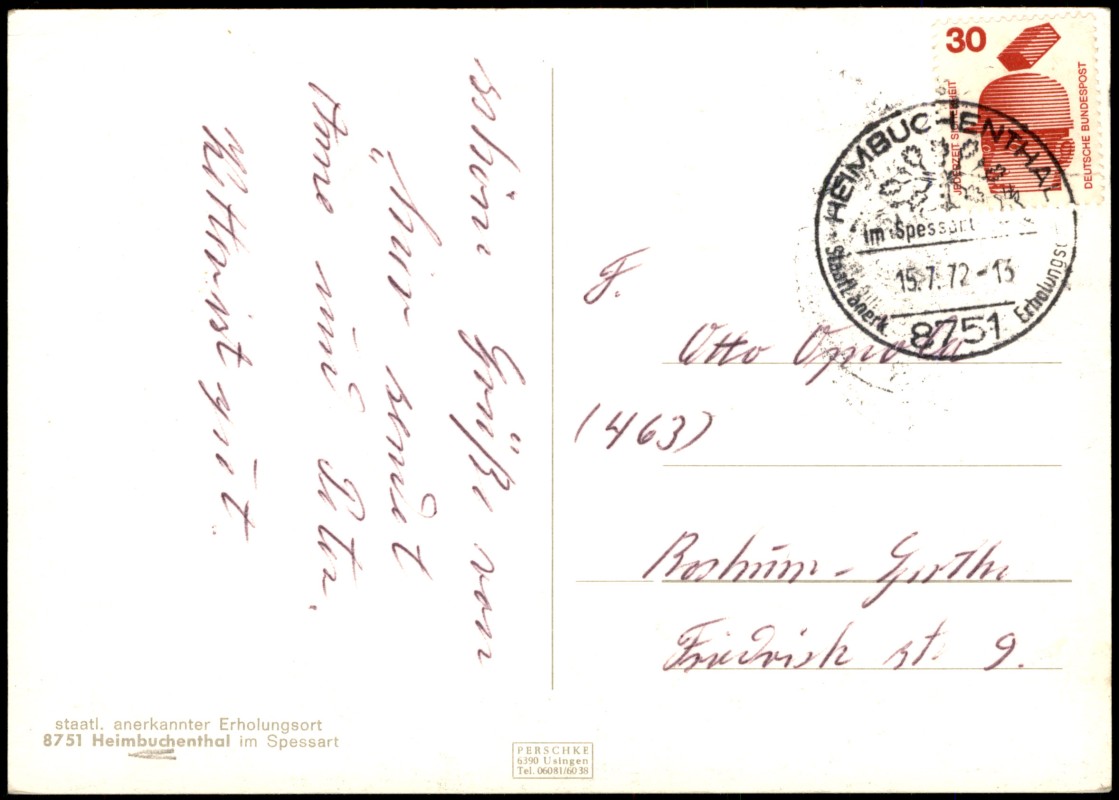 schöne Grüße von
Anne und Peter.
Wetter ist gut.
staatl. anerkannter Erholungsort
8751 Heimbuchenthal im Spessart
PERSCHKE
6390 Usingen
Tel. 06081/6038
30
JEDERZEIT SICHERHEIT
DEUTSCHE BUNDESPOST
HEIMBUCHENTHAL
im Spessart
15.7.72-13
staatl. anerk. Erholungso
8751
F.
Otto
(463)
Bochum - Gerthe
Friedrich st. 9.